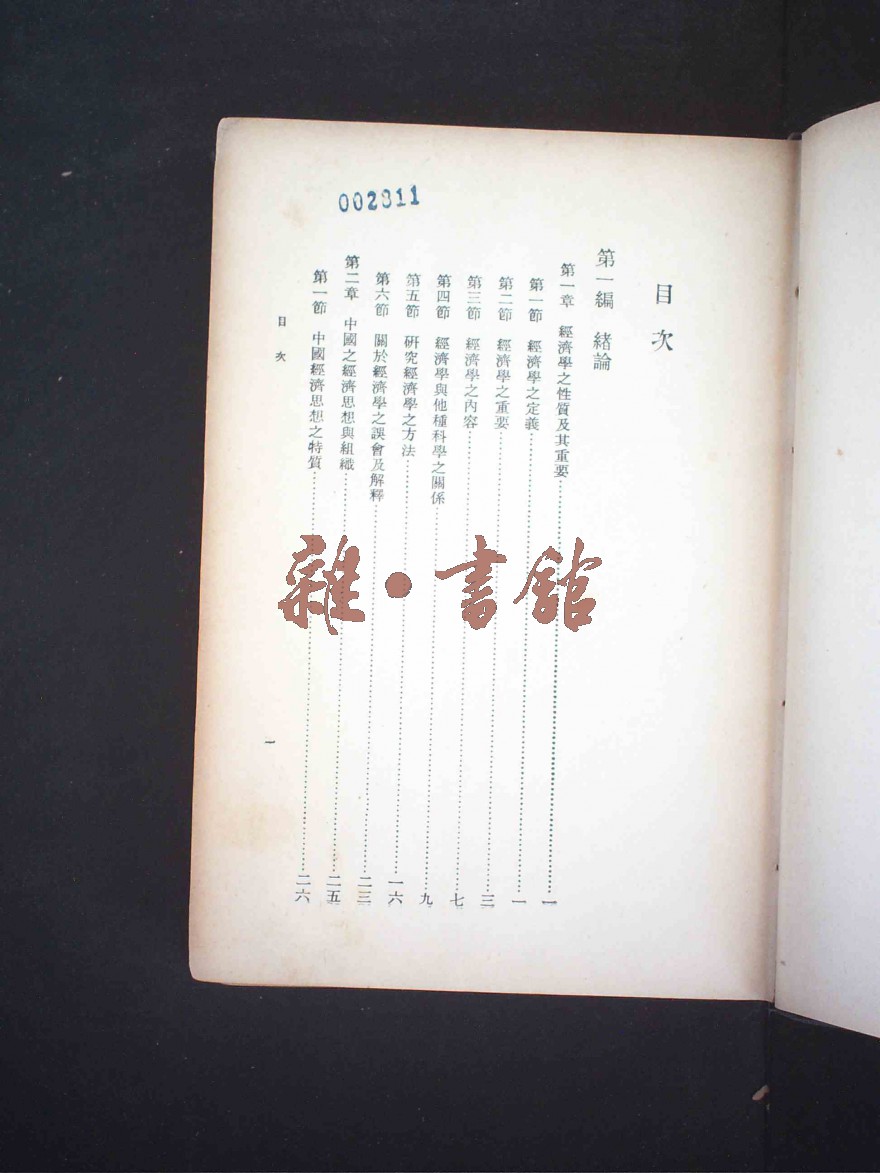 002811
目次
第一編 緒論
第一章 經濟學之性質及其重要……一
第一節 經濟學之定義……一
第二節 經濟學之重要……三
第三節 經濟學之內容……七
第四節 經濟學與他種科學之關係……九
第五節 研究經濟學之方法……一六
第六節 關於經濟學之誤會及解釋……二三
第二章 中國之經濟思想與組織……二五
第一節 中國經濟思想之特質……二六
目次
一
雜·書館